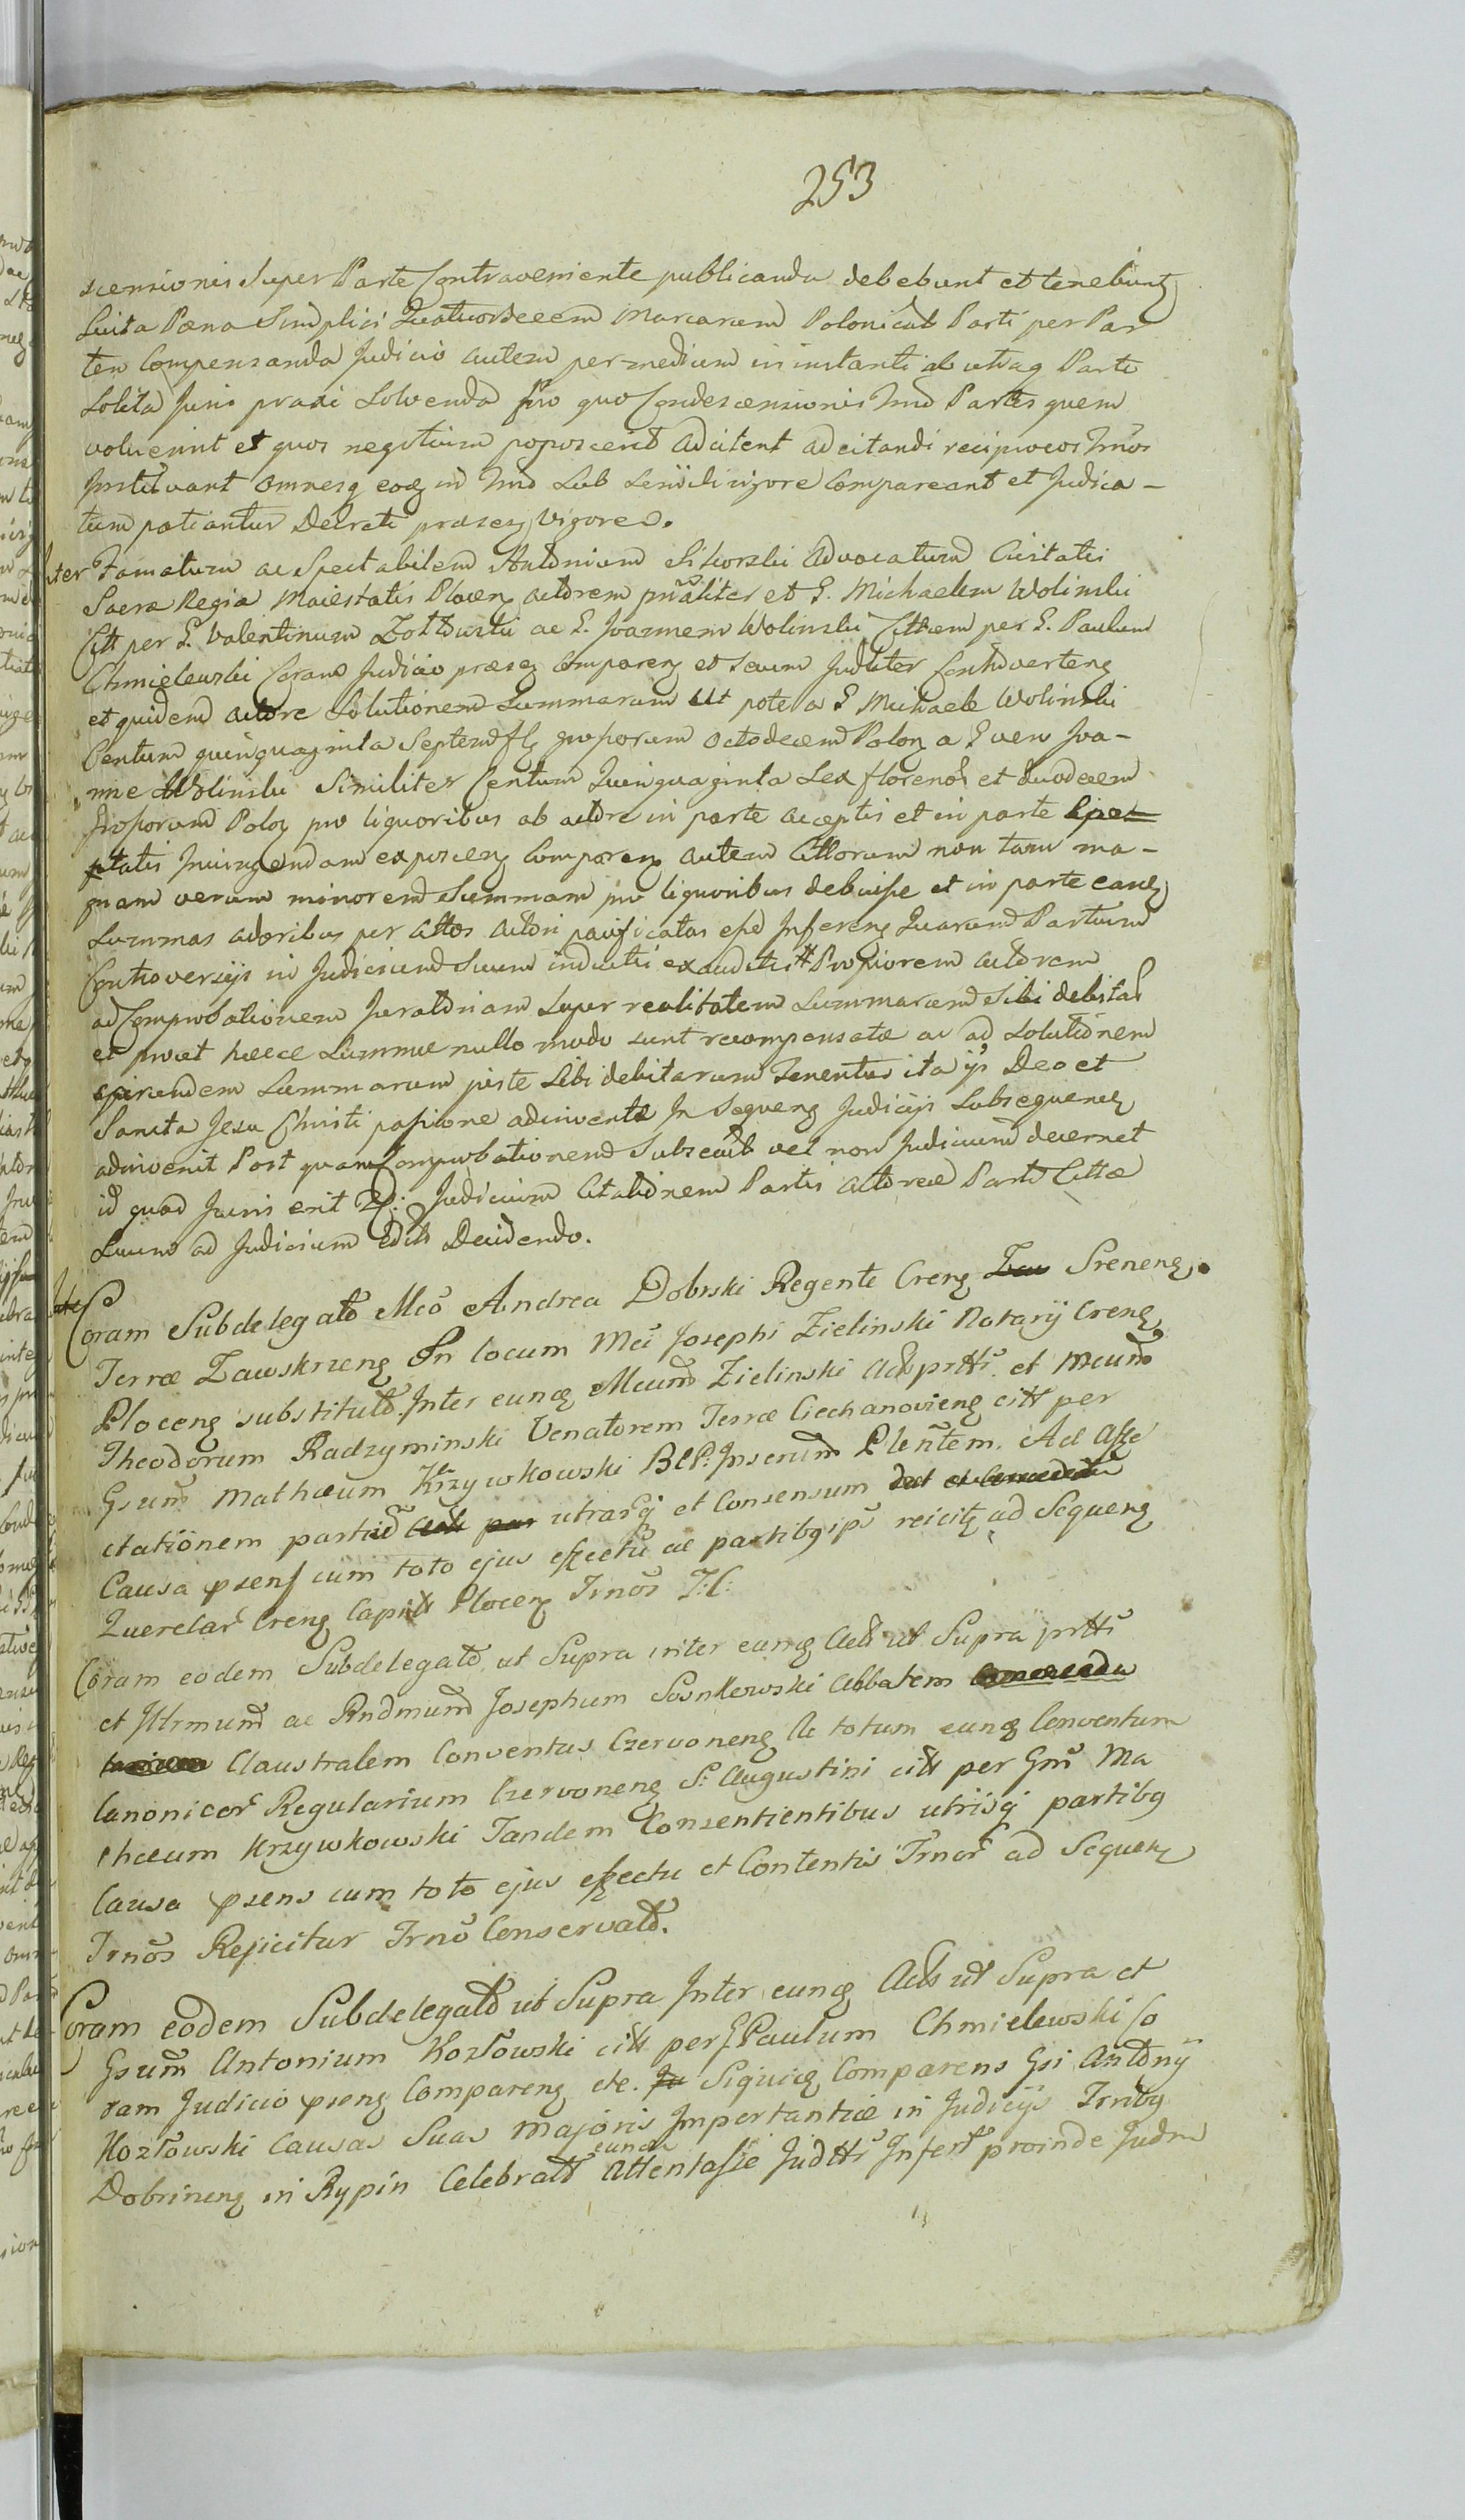 253
scensionis Super Parte Contraveniente publicanda debebunt et tenebunt
Luita Pæna Simplici Quatuordecem Marcarum Polonical Parti per Par
tem Compensanda Judicio autem per medium in instanti ab utraq Parte
Solita Juris praxi Solvenda pro quo Condescensionis Tmo Partes quem
voluerint et quos negotium poposcerit adcitent ad citandi reciprocos Tmos
Instituant Omnesq eoq in Tmo Sub rigore Compareant et Judica-
tum patiantur Decreti præsen Vigore.
ter Famatum ac Spectabilem Antonium Sikorski Advocatum Civitatis
Sacræ Regiæ Maiestatis Plocen actorem prnaliter et G. Michaelem Wolinski
Citt per G. Valentinum ac G. Joannem Wolinski Cittum per G. Paulum
Chmielewski Coram Judicio præsen Comparen et Secum Juditer Controverten
et quidem actore Solutionem Summarum Ut pote a G Michaele Wolinski
Centum quinquaginta Septem fl grossorum octodecem Polon a G vero Joa-
nne Wolinski Similiter Centum Quinquaginta Sex florenor et duodecem
Grossorum Polon pro liquoribus ab actore in parte acceptis et in parte
ptatis Injungendam exposcen Comparen autem Cittorum non tam ma-
gnam verum minorem Summam pro liquoribus debuisse et in parte easdem
Summas actoribus per Cittos actori pacificatas esse Inferen Quarum Partium
Controversijs in Judicium Suum inductis exauditis # Propiorem actorem
ad Comprobationem Juratoriam Super realitatem Summarum Sibi debitar
et prout hæcce Summæ nullo modo sunt recompensatæ ac ad Solutionem
earundem Summarum juste Sibi debitarum Tenentur ita ijs Deo et
Sancta Jesu Christi passione adinvento In Sequen Judicijs Subsequen
adinvenit Post quam Comprobationem Subsecut vel non Judicium decernet
id quod Juris erit D: Judicium Citationem Partis Actoreæ Parti Cittæ
Suum ad Judicium Edit Decidendo.
Coram Subdelegato Mco Andrea Dobrski Regente Cren Zaw Srenen.
Terræ Zawskrzen In locum Mci Josephi Zielinski Notarij Cren
Plocen substituto. Inter eunq Mcum Zielinski Act prtti. et Mcum
Theodorum Radzyminski Venatorem Terræ Ciechanovien citt per
Gsum Mathæum Krzywkowski BCP: Inserum Plentem. Ad Affe
ctationem partiu Act par utrasq et Consensum dat et
Causa psens cum toto ejus effectu ac partibq ips reicitr ad Sequen
Querelar Cren Capitt Plocen Trnos T:C:
Coram eodem Subdelegato, ut Supra inter eunq Act ut Supra prtti
et Illrmum ac Rndmum Josephum Sosnkowski Abbatem
Claustralem Conventus Czervonen Ac totum eunq Conventum
Canonicor Regularium Czervonen S: Augustini citt per Gm Ma
thæum Krzywkowski Tandem Consentientibus utrisq partibq
Causa psens cum toto ejus effectu et Contentis Trnor ad Sequen
Trnos Rejicitur Trno Conservato.
Coram eodem Subdelegato ut Supra Inter eunq Act ut Supra et
Gsum Antonium Kozłowski citt per G Paulum Chmielewski Co
ram Judicio psen Comparen etc. In Siquiq Comparens Gsi Antonij
Kozłowski Causas Suas Majoris Importantiæ in Judicijs Trrribq
Dobrinen in Rypin Celebrat eunde Attentasse Judtti Infert proinde Judm